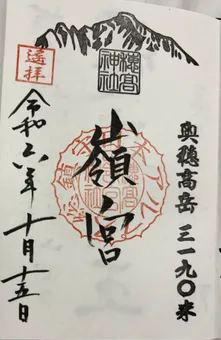 奥穂高岳 三一九〇米
穂高神社
嶺宮
遙拝
令和六年十月十五日